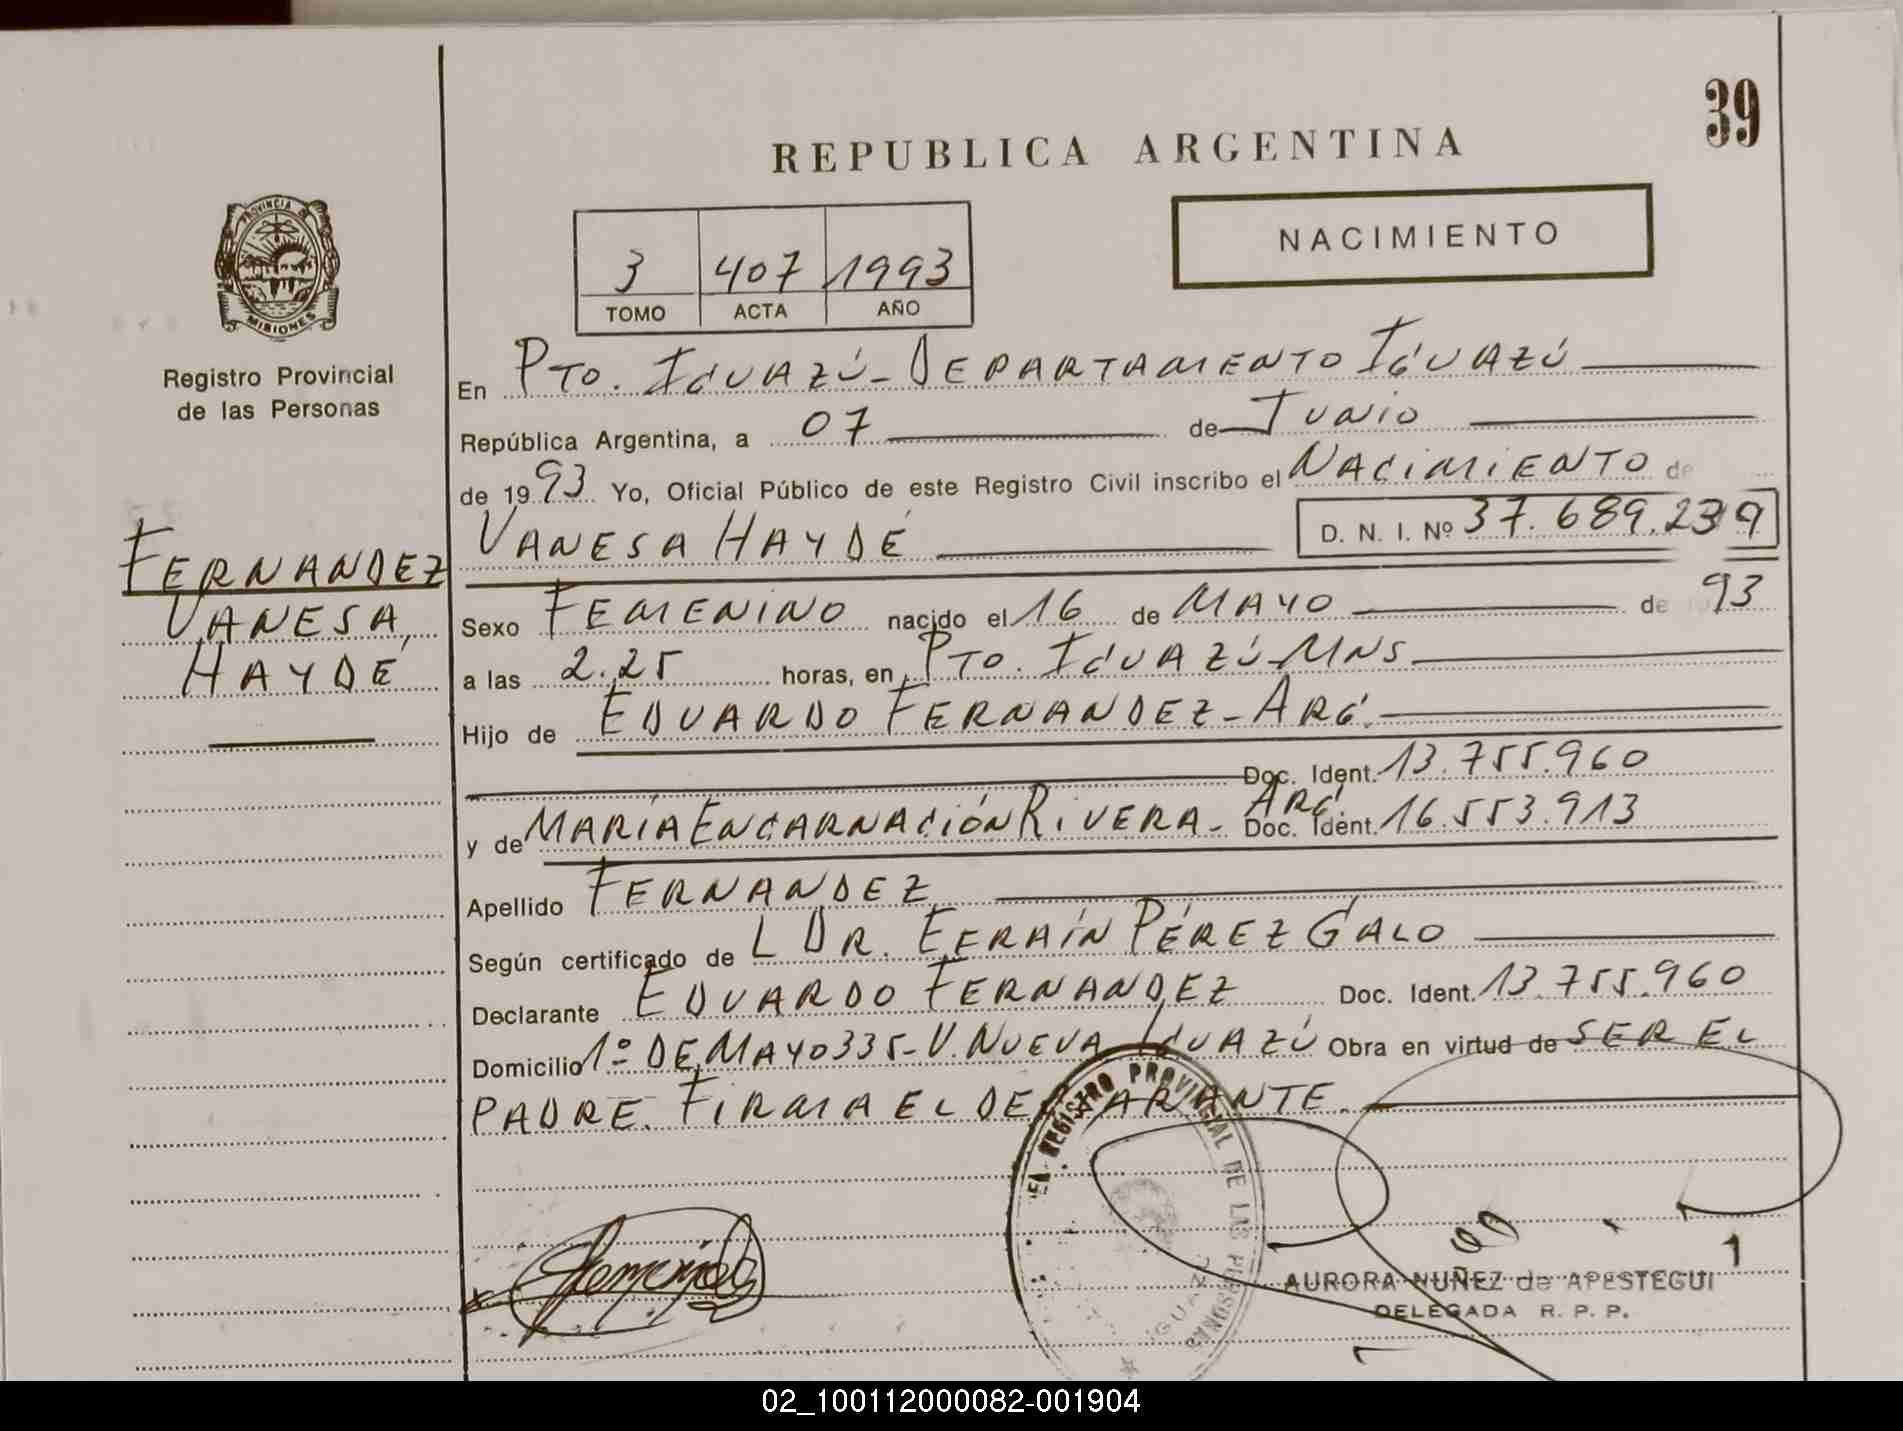 39
REPUBLICA ARGENTINA
NACIMIENTO
PROVINCIA DE
MISIONES
3 407 1993
TOMO ACTA AÑO
Registro Provincial
de las Personas
En Pto. Iguazú - Departamento Iguazú
República Argentina, a 07 de Junio
de 1993 Yo, Oficial Público de este Registro Civil inscribo el Nacimiento de
Vanesa Haydé D. N. I. Nº 37.689.239
Fernandez
Vanesa
Haydé
Sexo Femenino nacido el 16 de Mayo de 93
a las 2.25 horas, en Pto. Iguazú - Mns
Hijo de Eduardo Fernandez - Arg.
Doc. Ident. 13.755.960
y de María Encarnación Rivera - Arg. Doc. Ident. 16.553.913
Apellido Fernandez
Según certificado de L Dr. Efraín Pérez Galo
Declarante Eduardo Fernandez Doc. Ident. 13.755.960
Domicilio 1º de Mayo 335 - V. Nueva Iguazú Obra en virtud de ser el
padre. Firma el declarante.
REGISTRO PROVINCIAL DE LAS PERSONAS
1
AURORA NUÑEZ de APESTEGUI
DELEGADA R. P. P.
02_100112000082-001904